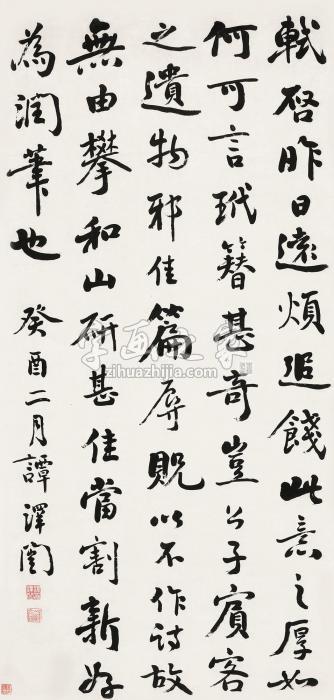 軾啓昨日遠煩追餞此意之厚如
何可言玳簪甚奇豈公子賓客
之遺物邪佳篇辱貺以不作詩故
無由攀和山研甚佳當割新好
為潤筆也
癸酉二月譚澤闓
字画之家
zihuazhijia.com